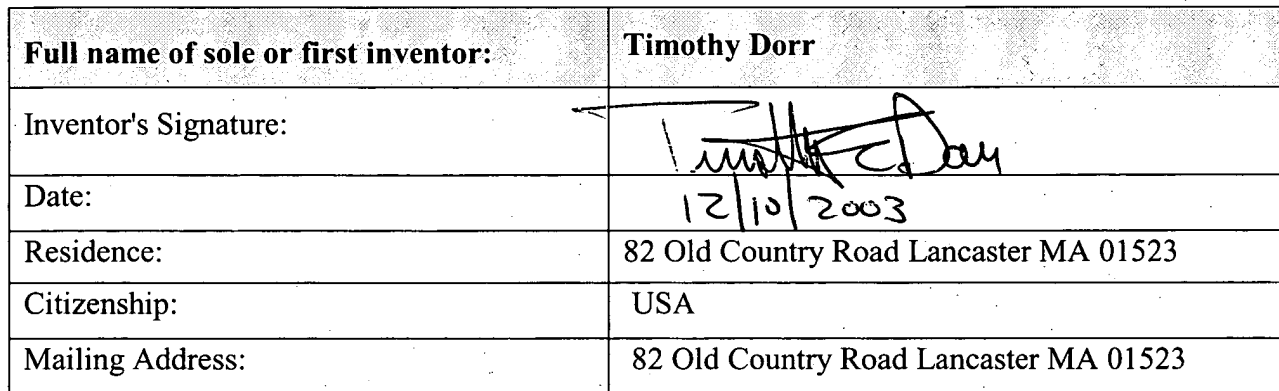 Full name of sole or first inventor: Timothy Dorr
Inventor's Signature: Timothy C Dorr
Date: 12/10/2003
Residence: 82 Old Country Road Lancaster MA 01523
Citizenship: USA
Mailing Address: 82 Old Country Road Lancaster MA 01523